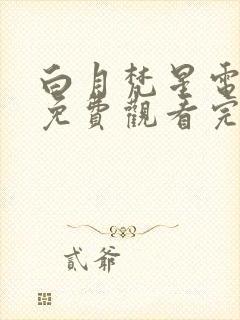 白月梵星電
免費觀看完
貳爺